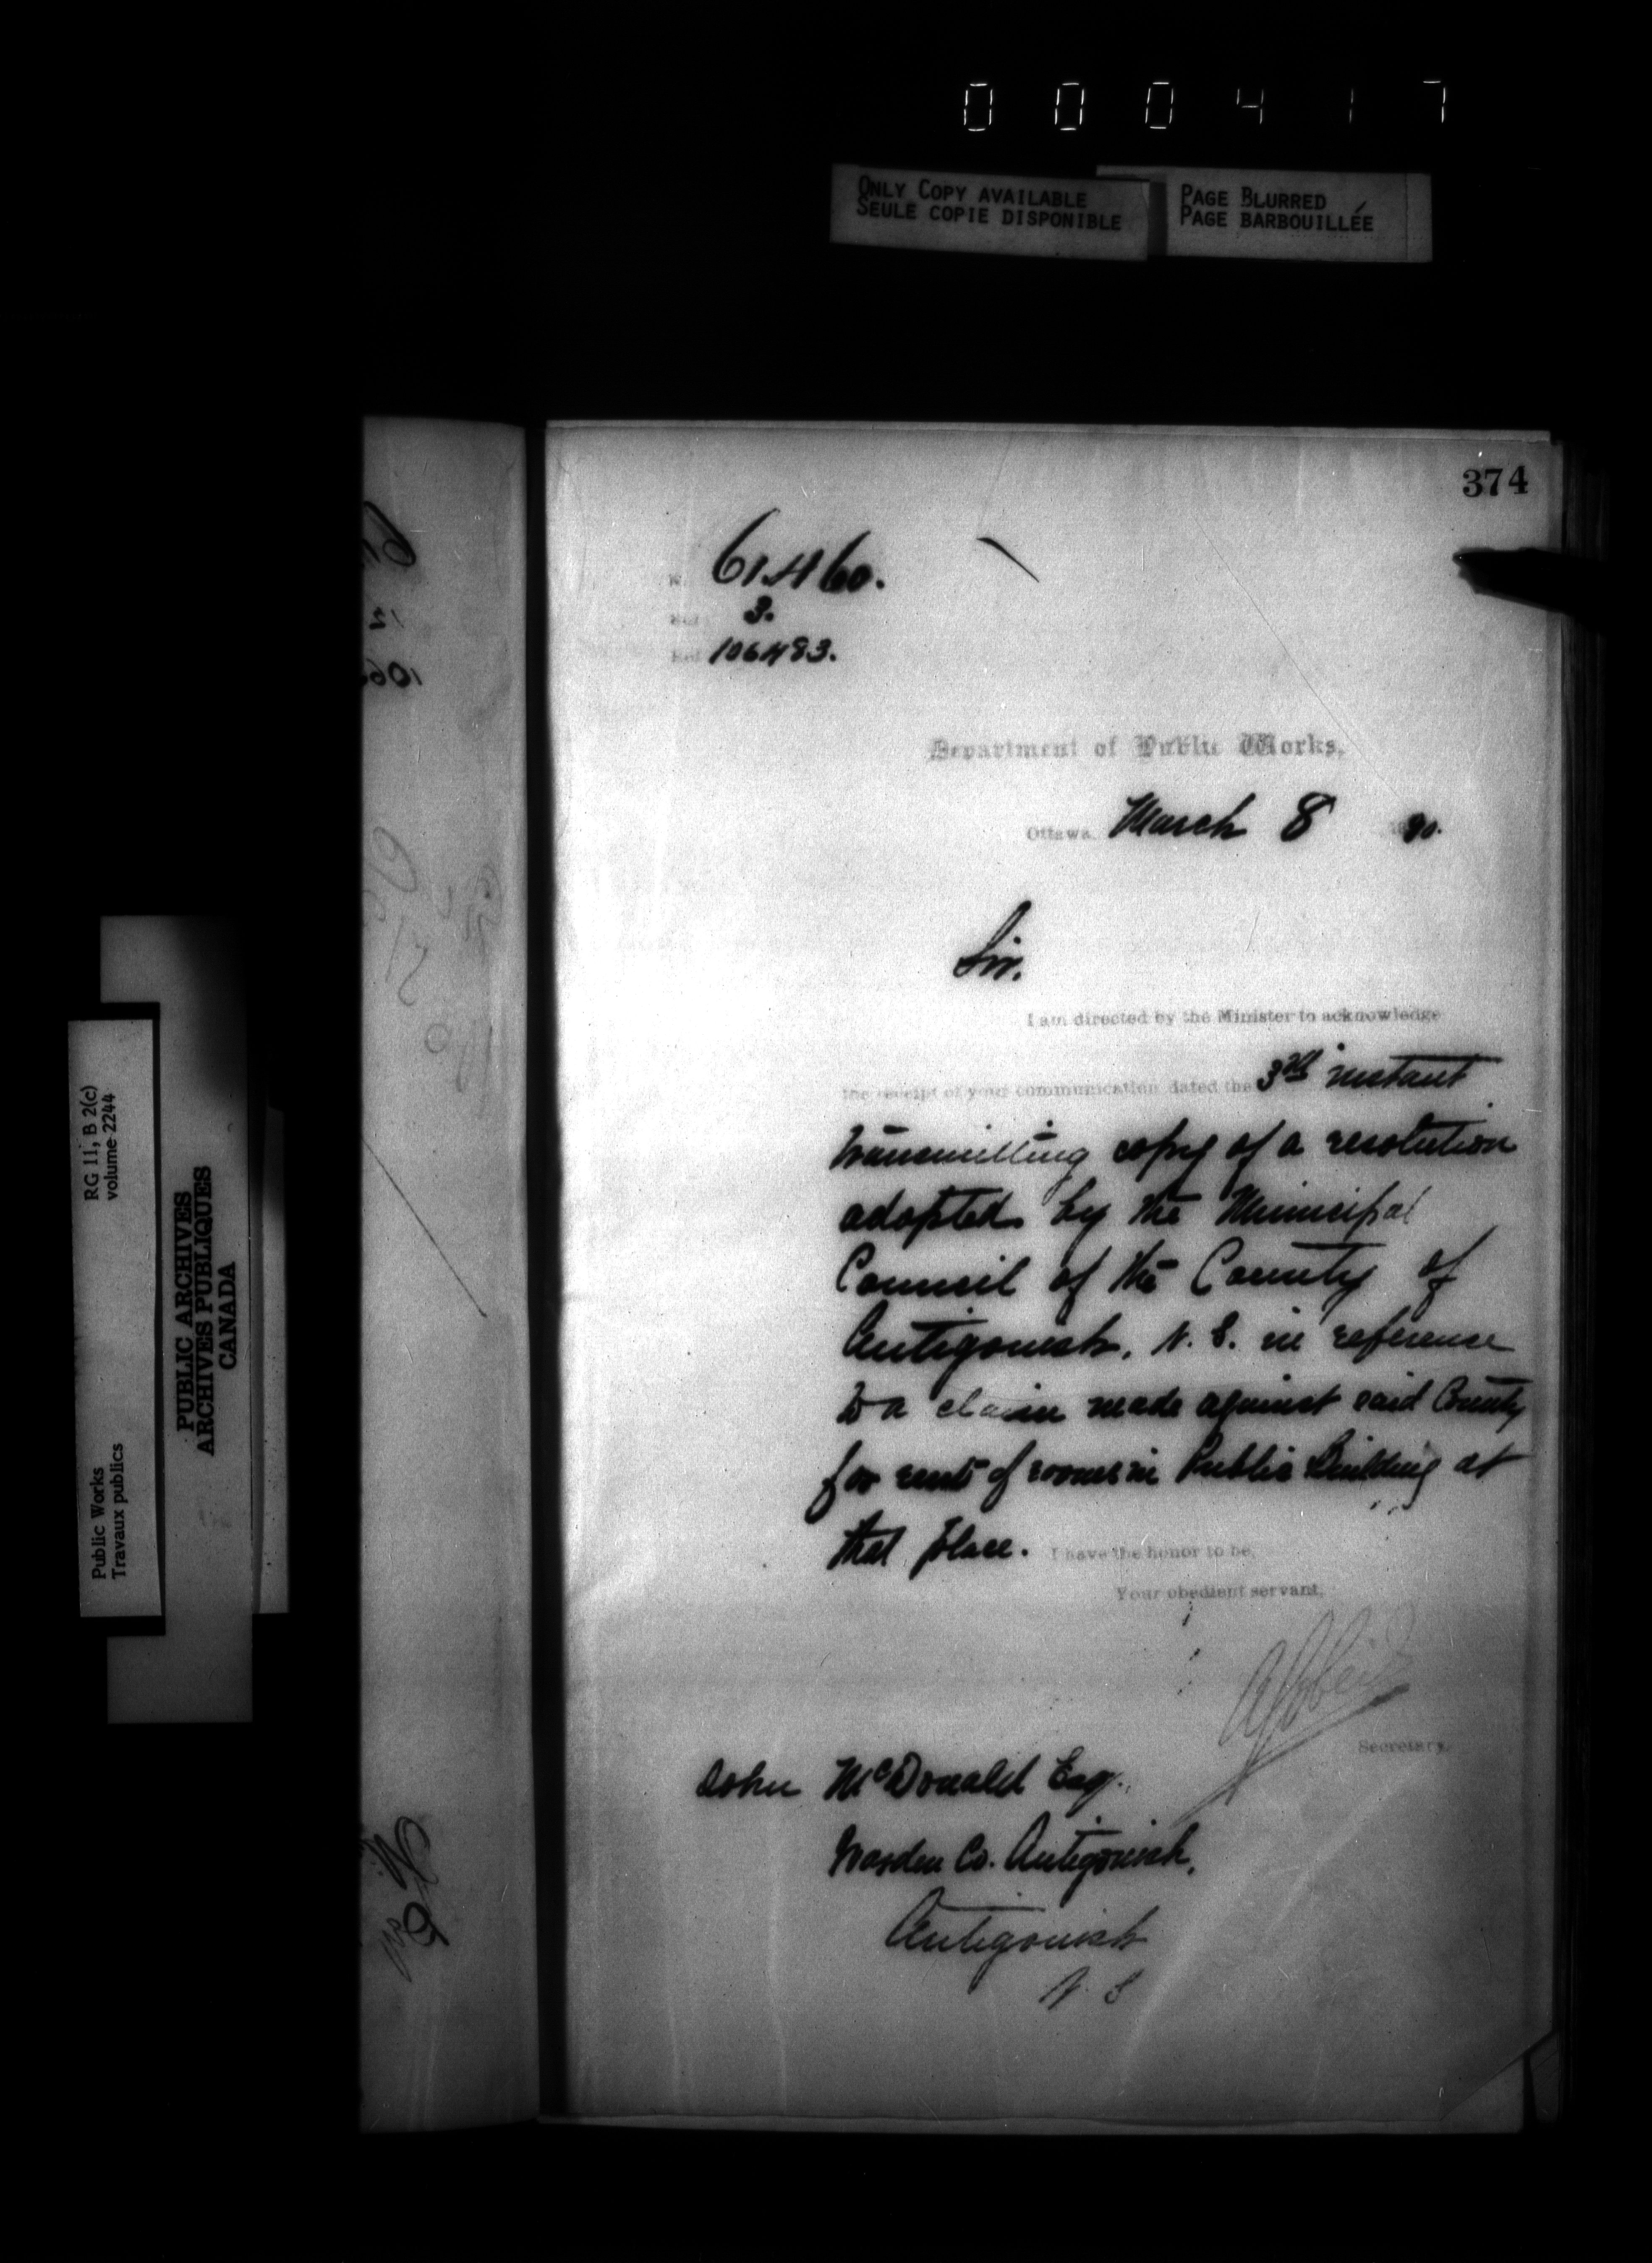 000417
ONLY COPY AVAILABLE
SEULE COPIE DISPONIBLE
PAGE BLURRED
PAGE BARBOUILLÉE
374
61460.
3.
106483.
Department of Public Works,
Ottawa, March 8 90.
Sir,
I am directed by the Minister to acknowledge
the receipt of your communication dated the 3rd instant
transmitting copy of a resolution
adopted by the Municipal
Council of the County of
Antigonish, N. S. in reference
to a claim made against said County
for rent of rooms in Public Building at
that place. I have the honor to be,
Your obedient servant,
Secretary.
John McDonald Esq.
Warden Co. Antigonish,
Antigonish
N S
RG 11, B 2(c)
volume 2244
Public Works
Travaux publics
PUBLIC ARCHIVES
ARCHIVES PUBLIQUES
CANADA